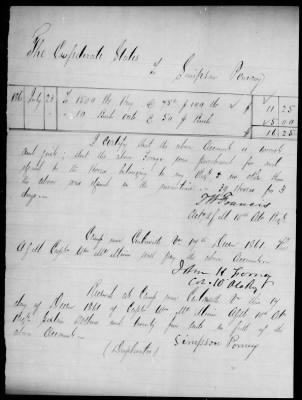 The Confederate States
To Simpson Penny
1861 July 23 To 1500 lbs Hay @ 75¢ p 100 lbs $ 11 25
" 10 Bush Oats @ 50 p Bush 5.00
$ 16.25
I certify that the above account is correct
and just; that the above forage was purchased for and
issued to the Horses belonging to my Regt & no other than
the above was issued on the 30 Horses for 3
days
T W Francis
Act Q M 10th Ala Regt
Camp near Centreville Va 14th Decr 1861 The
A Q M Capt Wm McAlpin will pay the above account
John H Forney
Col 10 Ala Regt
Received at Camp near Centreville Va this 19
day of Decr 1861 of Capt Wm
Sixteen Dollars and twenty five cents in full of the
above account
(Duplicates) Simpson Penny